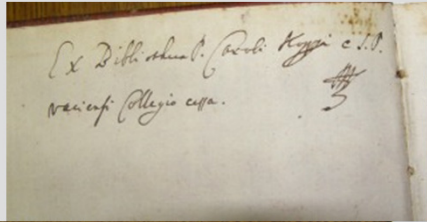 Ex Bibliotheca P. Caroli Koppi e S. P.
vaciensi Collegio cessa.